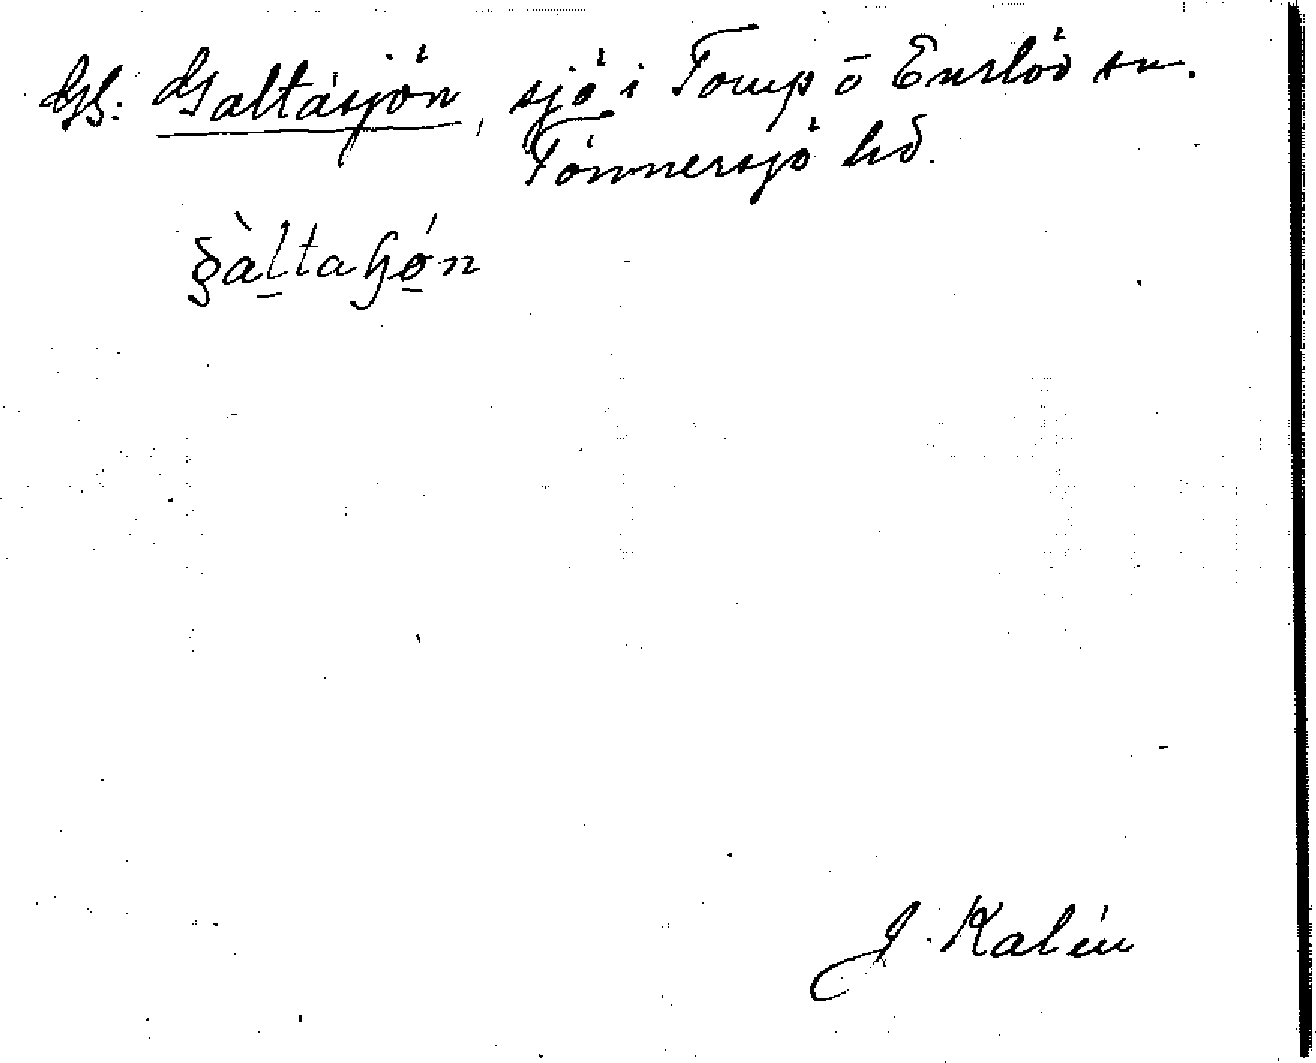 Gs: Galtåsjön, sjö i Torup o Enslöv sn.
Tönnersjö hd.
J. Kalén